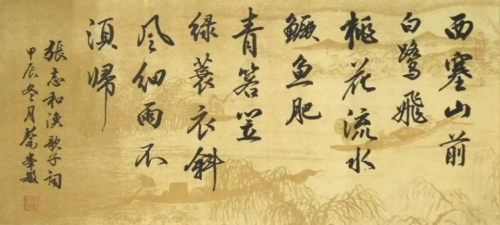 西塞山前
白鹭飞
桃花流水
鳜鱼肥
青箬笠
绿蓑衣斜
风细雨不
须归
张志和渔歌子词
甲辰冬月